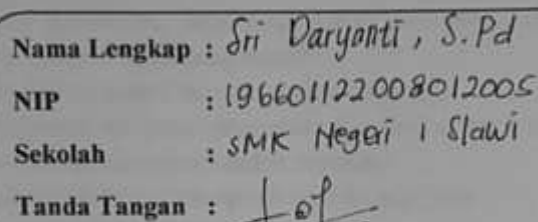 Nama Lengkap : Sri Daryonti, S.Pd
NIP : 196601122008012005
Sekolah : SMK Negeri 1 Slawi
Tanda Tangan :